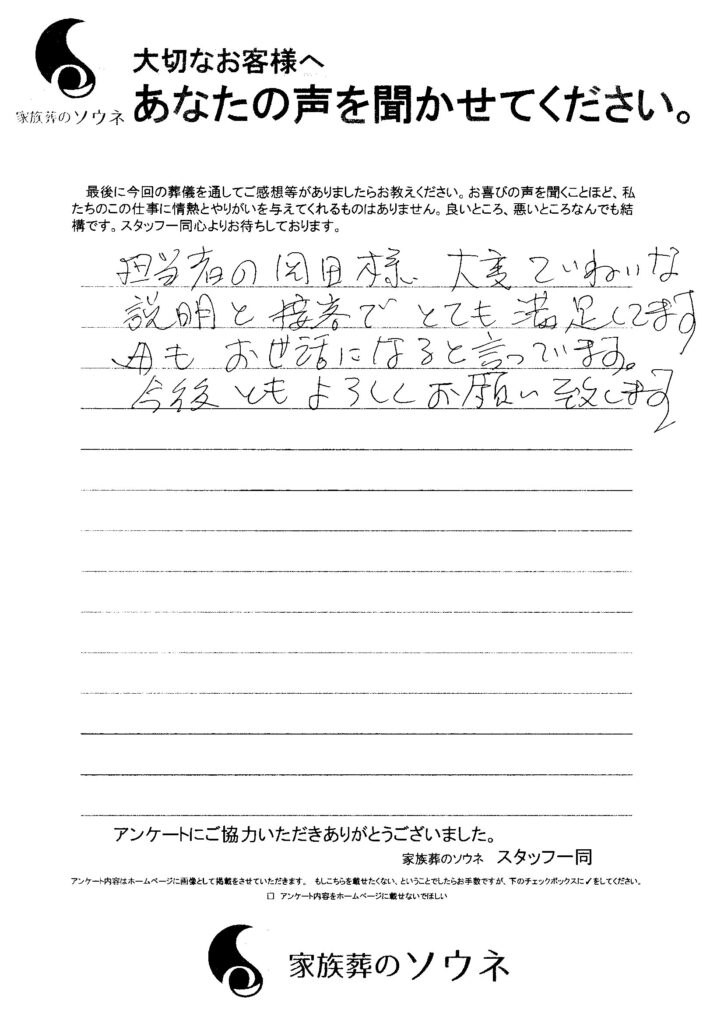 大切なお客様へ
家族葬のソウネ
あなたの声を聞かせてください。
最後に今回の葬儀を通してご感想等がありましたらお教えください。お喜びの声を聞くことほど、私
たちのこの仕事に情熱とやりがいを与えてくれるものはありません。良いところ、悪いところなんでも結
構です。スタッフ一同心よりお待ちしております。
担当者の岡田様、大変ていねいな
説明と接客でとても満足してます
母もお世話になると言っています。
今後ともよろしくお願い致します
アンケートにご協力いただきありがとうございました。
家族葬のソウネ スタッフ一同
アンケート内容はホームページに画像として掲載をさせていただきます。 もしこちらを載せたくない、ということでしたらお手数ですが、下のチェックボックスに✓をしてください。
☐ アンケート内容をホームページに載せないでほしい
家族葬のソウネ